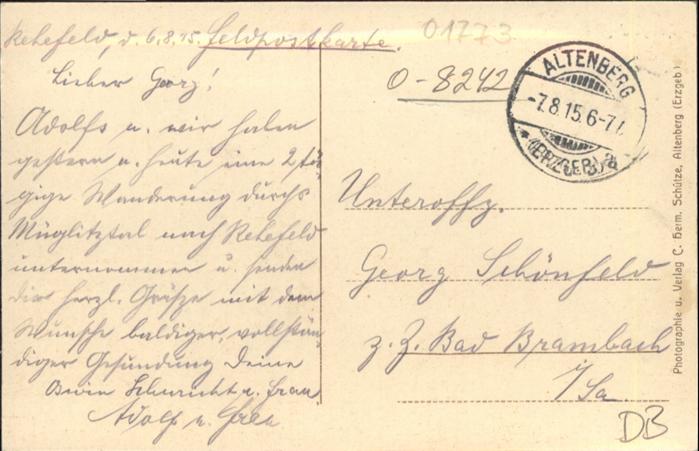 Rehefeld, d. 6.8.15. Feldpostkarte.
01773
Lieber Georg!
O-8242
ALTENBERG
-7.8.15.6-7
(ERZGEB.)
Adolfs u. wir haben
gestern u. heute eine 2 tä-
gige Wanderung durchs
Müglitztal nach Rehefeld
unternommen u. senden
dir herzl. Grüße mit dem
Wunsche baldiger, vollstän-
diger Gesundung Deine
Schuricht u. Frau
Adolf u. Frau
Unteroffz.
Georg Schönfeld
z. Z. Bad Brambach
i/Sa.
DB
Photographie u. Verlag C. Herm. Schütze, Altenberg (Erzgeb.)